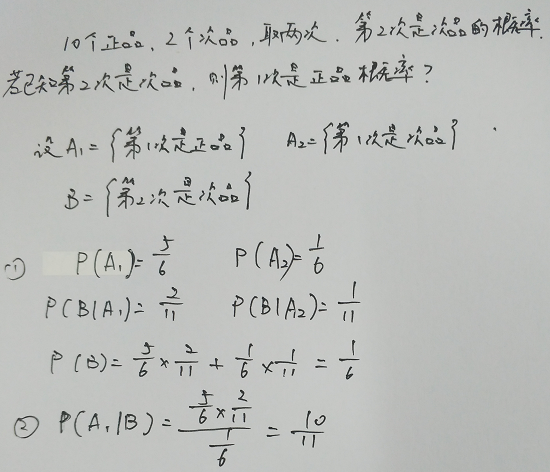 10个正品、2个次品，取两次．第2次是次品的概率.
若已知第2次是次品，则第1次是正品概率？
设 A₁={第1次是正品} A₂={第1次是次品}
B={第2次是次品}
① P(A₁)=5/6 P(A₂)=1/6
P(B|A₁)=2/11 P(B|A₂)=1/11
P(B)=5/6×2/11+1/6×1/11=1/6
② P(A₁|B)=(5/6×2/11)/(1/6)=10/11